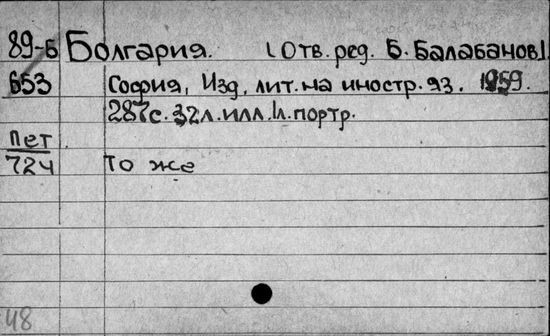 89-Б Болгария. (Отв. ред. Б. Балабанов).
653 София, Изд. лит. на иностр. яз. 1959.
287с. 32л. илл. 1л. портр.
Пет
724 То же
48